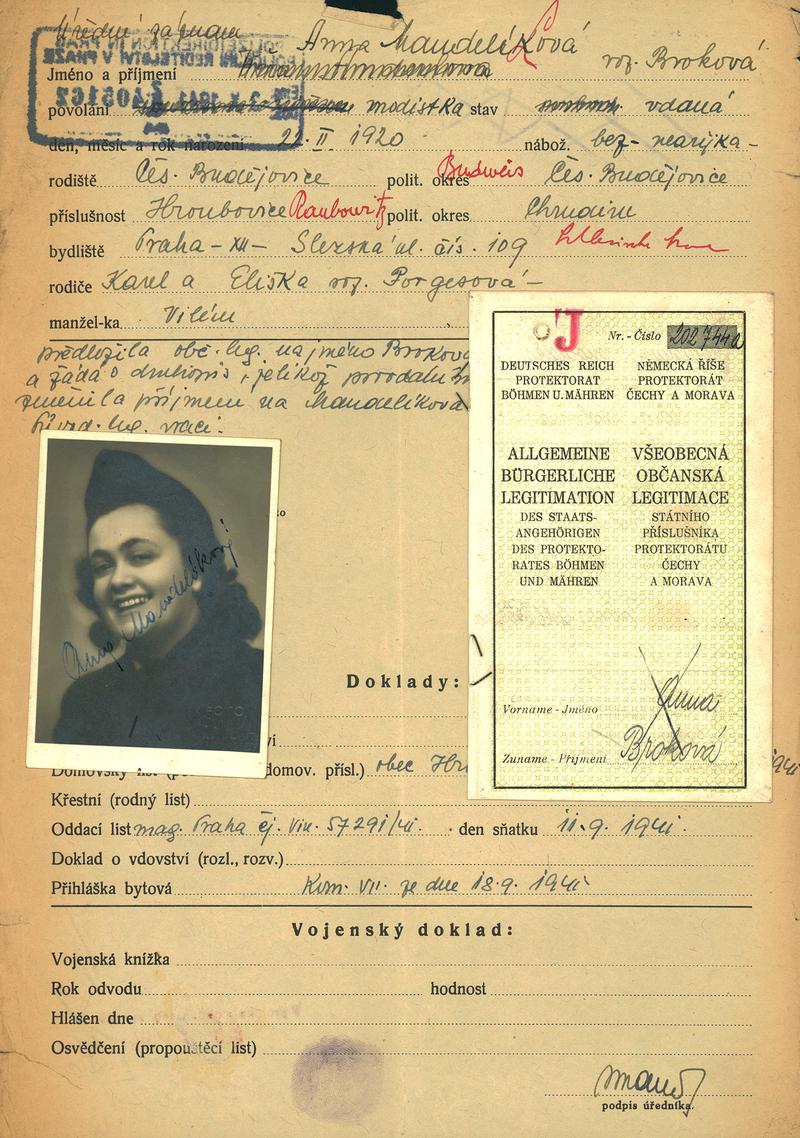 Úřední záznam
Anna Mandelíková roz. Broková
Jméno a příjmení
povolání modistka stav vdaná
den, měsíc a rok narození 22. II 1920 nábož. bez - nearijka -
rodiště Čes. Budějovice polit. okres Budweis Čes. Budějovice
příslušnost Hroubovice Raubowitz polit. okres Chrudim
bydliště Praha - XII - Slezská ul. čís. 109
rodiče Karel a Eliška roz. Porgesová -
manžel-ka Vilém
předložila obč. leg. na jméno Broková
a žádá o , jelikož provdáním
změnila příjmení na Mandelíková
leg. vrací.
J
Nr. - Číslo 202744
DEUTSCHES REICH NĚMECKÁ ŘÍŠE
PROTEKTORAT PROTEKTORÁT
BÖHMEN U. MÄHREN ČECHY A MORAVA
ALLGEMEINE VŠEOBECNÁ
BÜRGERLICHE OBČANSKÁ
LEGITIMATION LEGITIMACE
DES STAATS- STÁTNÍHO
ANGEHÖRIGEN PŘÍSLUŠNÍKA
DES PROTEKTO- PROTEKTORÁTU
RATES BÖHMEN ČECHY
UND MÄHREN A MORAVA
Vorname - Jméno Anna
Zuname - Příjmení Broková
Anna Mandelíková
FOTO
Doklady:
Domovský list domov. přísl.) obec
Křestní (rodný list)
Oddací list mag. Praha čj. VIII. 57291/41. den sňatku 11.9.1941.
Doklad o vdovství (rozl., rozv.)
Přihláška bytová Kom. VII. ze dne 18.9.1941
Vojenský doklad:
Vojenská knížka
Rok odvodu hodnost
Hlášen dne
Osvědčení (propouštěcí list)
podpis úředníka.